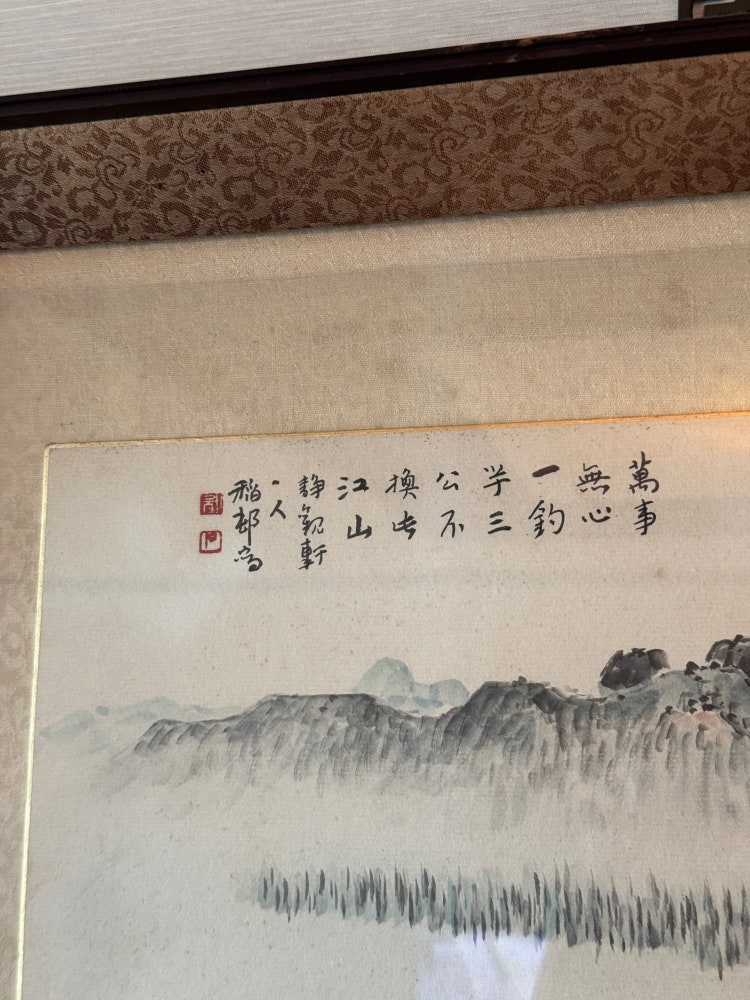 萬事
無心
一釣
竿三
公不
換此
江山
静観軒
人
稻邨寫